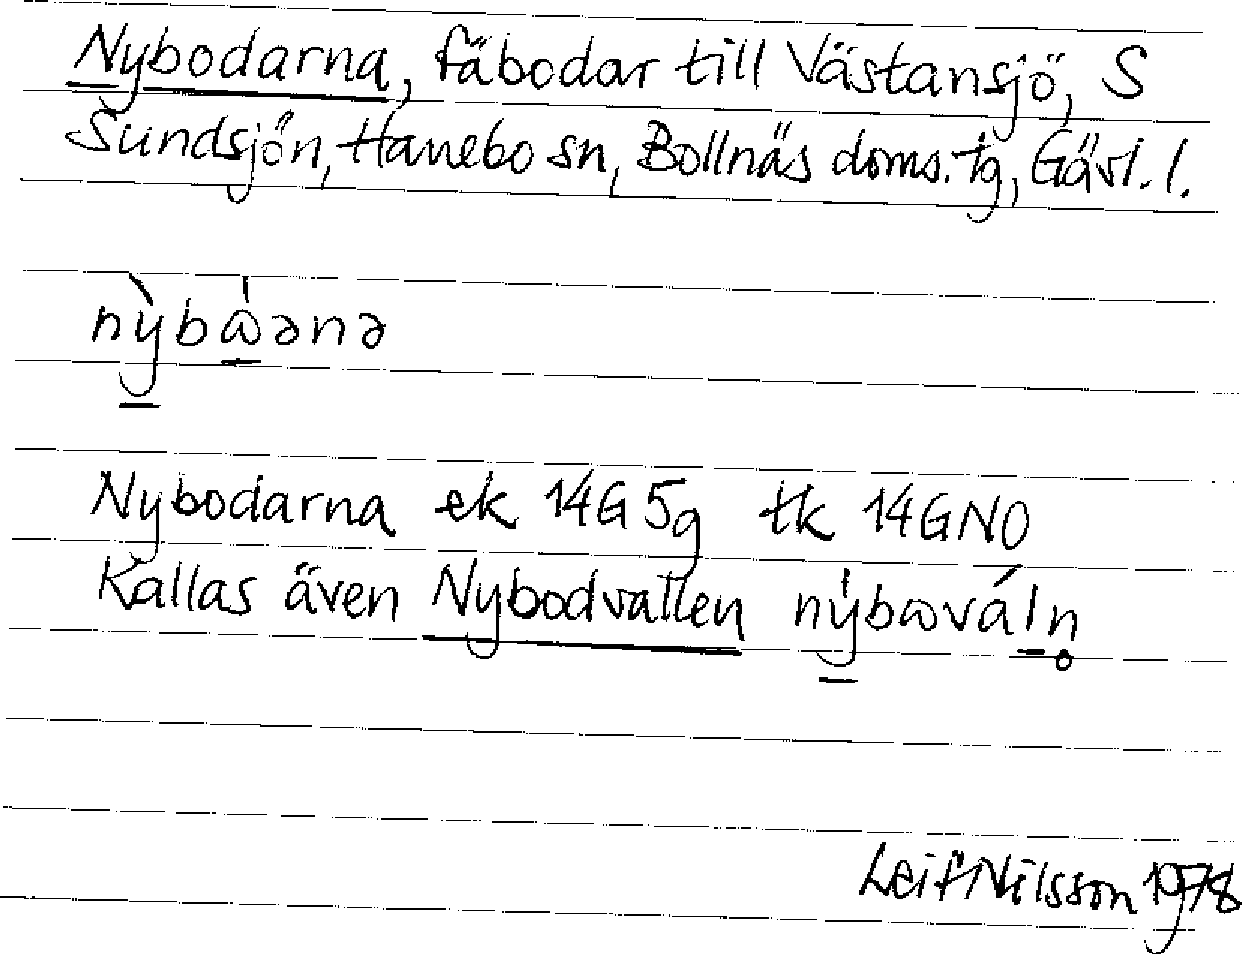 Nybodarna, fäbodar till Västansjö, S
Sundsjön, Hanebo sn, Bollnäs doms. tg, Gävl. l.
nỳbɷ̀ənə
Nybodarna ek 14G5g tk 14GNO
Kallas även Nybodvallen nýbɷváln̥
Leif Nilsson 1978